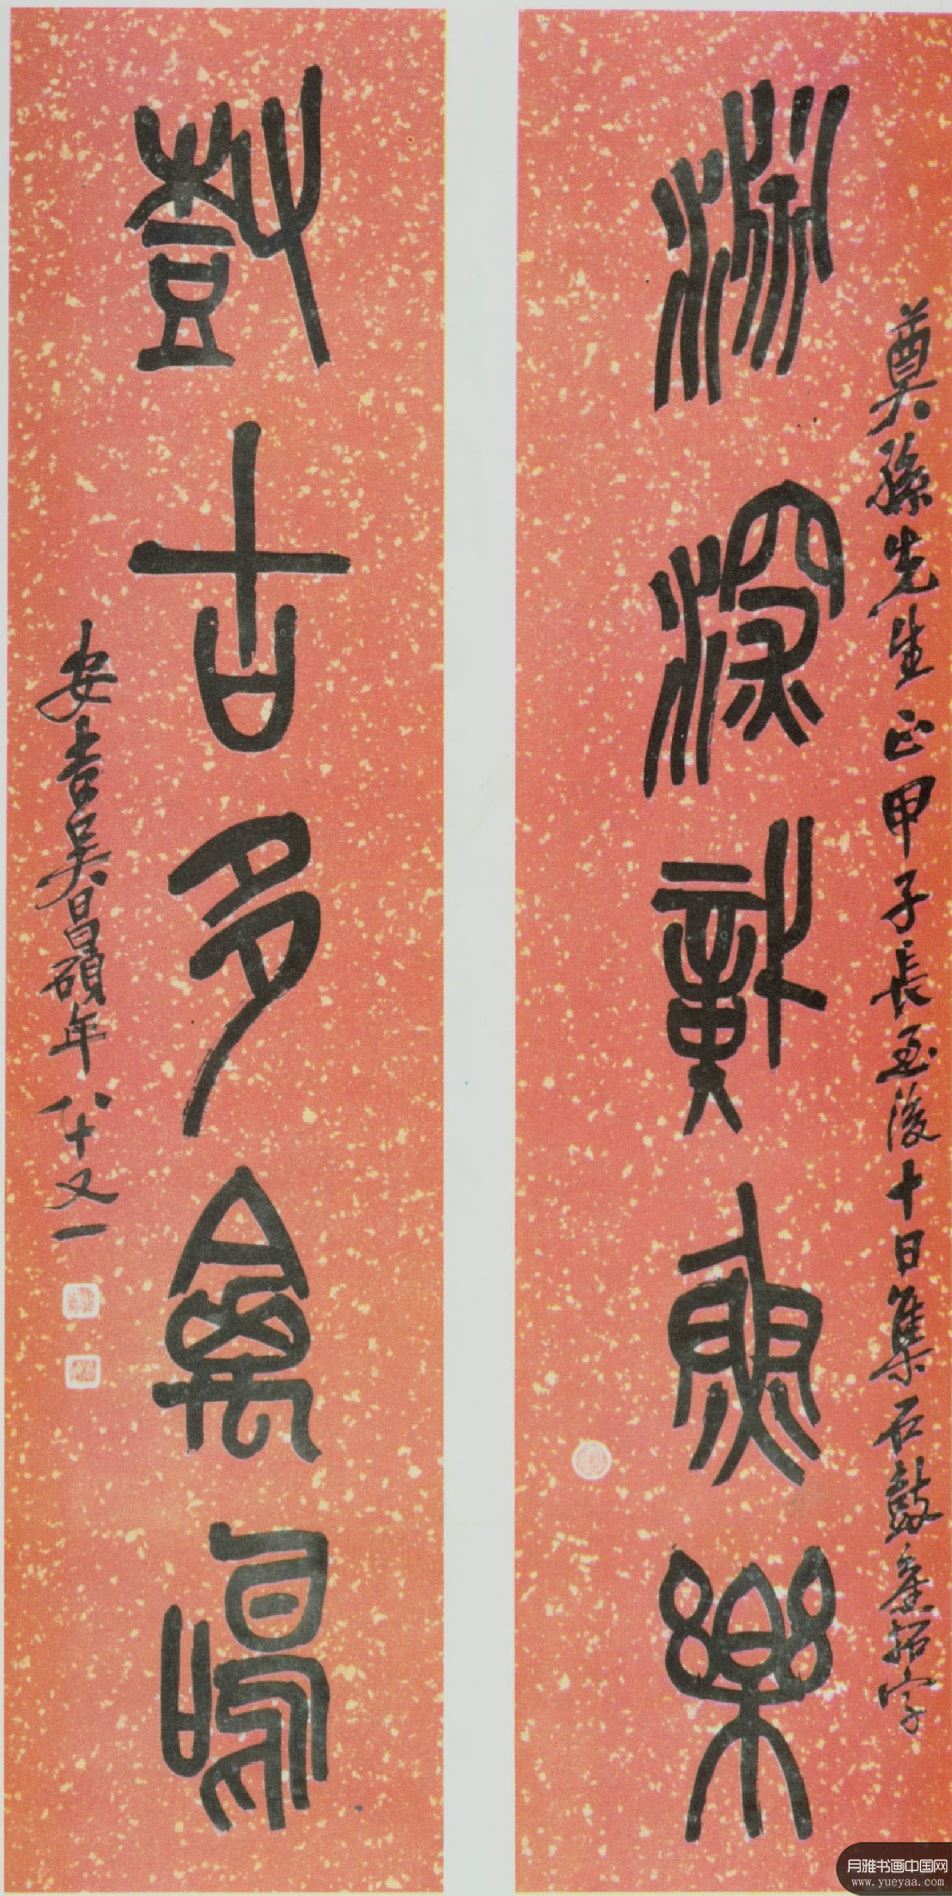 奠孫先生正甲子長至後十日集石鼓舊拓字
淵深識魚樂
樹古多禽鳴
安吉吳昌碩年八十又一
月雅书画中国网
www.yueyaa.com